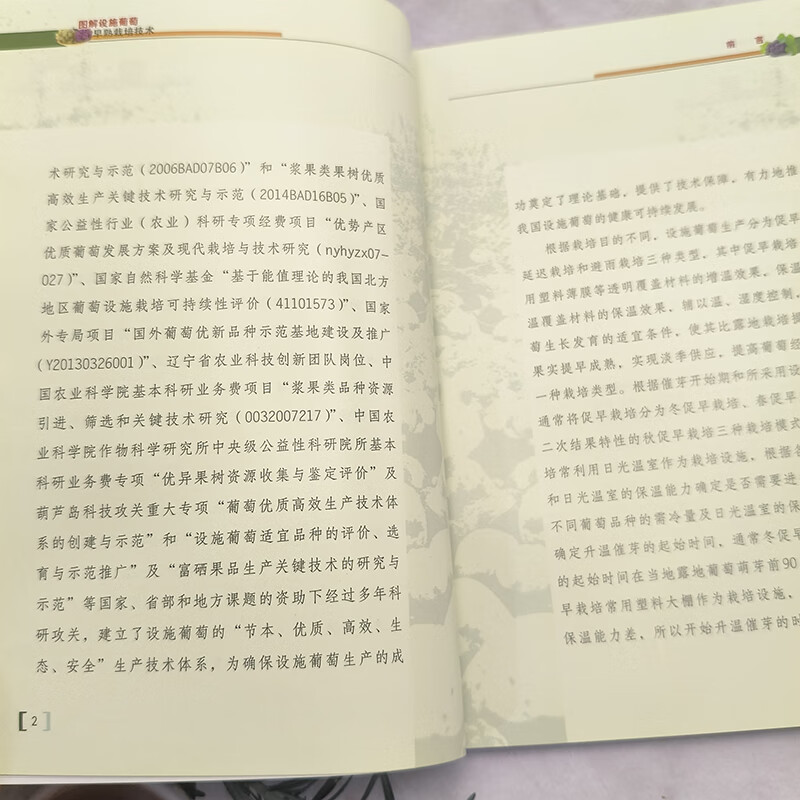 图解设施葡萄
早熟栽培技术
术研究与示范（2006BAD07B06）”和“浆果类果树优质
高效生产关键技术研究与示范（2014BAD16B05）”、国
家公益性行业（农业）科研专项经费项目“优势产区
优质葡萄发展方案及现代栽培与技术研究（nyhyzx07-
027）”、国家自然科学基金“基于能值理论的我国北方
地区葡萄设施栽培可持续性评价（41101573）”、国家
外专局项目“国外葡萄优新品种示范基地建设及推广
（Y20130326001）”、辽宁省农业科技创新团队岗位、中
国农业科学院基本科研业务费项目“浆果类品种资源
引进、筛选和关键技术研究（0032007217）”、中国农
业科学院作物科学研究所中央级公益性科研院所基本
科研业务费专项“优异果树资源收集与鉴定评价”及
葫芦岛科技攻关重大专项“葡萄优质高效生产技术体
系的创建与示范”和“设施葡萄适宜品种的评价、选
育与示范推广”及“富硒果品生产关键技术的研究与
示范”等国家、省部和地方课题的资助下经过多年科
研攻关，建立了设施葡萄的“节本、优质、高效、生
态、安全”生产技术体系，为确保设施葡萄生产的成
[2]
前 言
功奠定了理论基础，提供了技术保障，有力地推
我国设施葡萄的健康可持续发展。
根据栽培目的不同，设施葡萄生产分为促早
延迟栽培和避雨栽培三种类型，其中促早栽培
用塑料薄膜等透明覆盖材料的增温效果，保温
温覆盖材料的保温效果，辅以温、湿度控制，
萄生长发育的适宜条件，使其比露地栽培提
果实提早成熟，实现淡季供应，提高葡萄经
一种栽培类型。根据催芽开始期和所采用设
通常将促早栽培分为冬促早栽培、春促早
二次结果特性的秋促早栽培三种栽培模式
培常利用日光温室作为栽培设施，根据各
和日光温室的保温能力确定是否需要进
不同葡萄品种的需冷量及日光温室的保
确定升温催芽的起始时间，通常冬促早
的起始时间在当地露地葡萄萌芽前90
早栽培常用塑料大棚作为栽培设施，
保温能力差，所以开始升温催芽的时